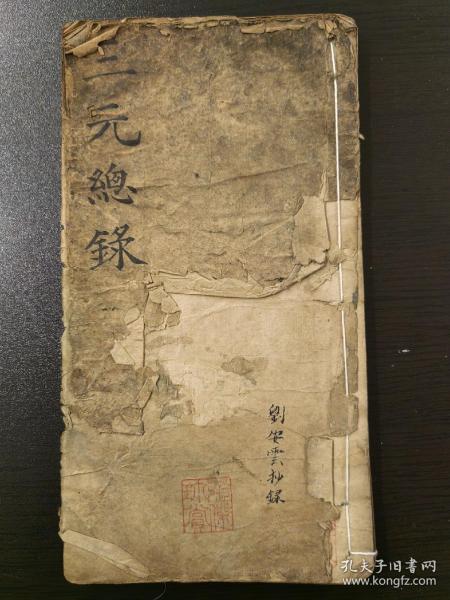 三元總錄
劉安雲抄録
孔夫子旧书网
www.kongfz.com